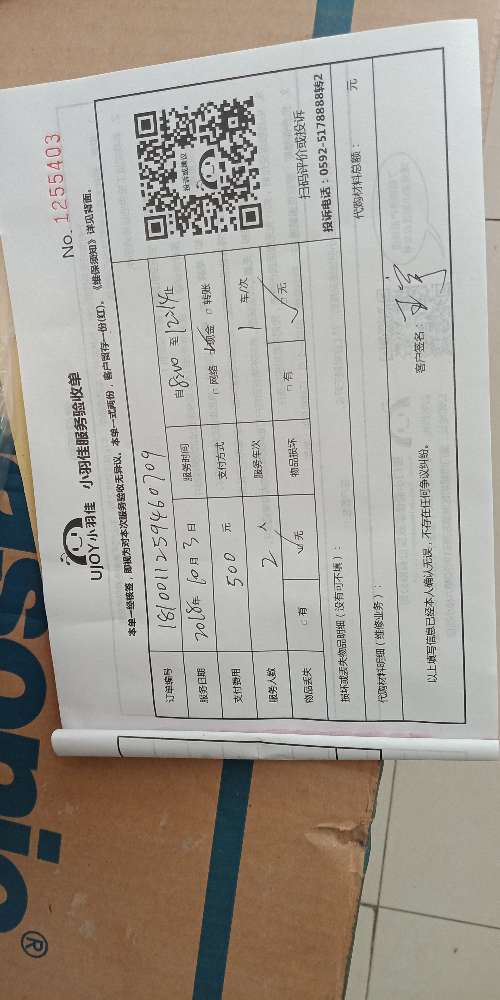 No. 1255403
UJOY小羽佳 小羽佳服务验收单
本单一经接签，即视为对本次服务验收无异议，本单一式两份，客户留存一份(红)。《维保须知》详见背面。
订单编号 181001125946 0709
服务日期 2018年10月3日 服务时间 自8:00至12:14止
支付费用 500元 支付方式 □网络 □现金 □转账
服务人数 2人 服务车次 1车/次
物品丢失 □有 □无 物品损坏 □有 □无
投诉或建议
扫码评价或投诉
投诉电话：0592-5178888转2
损坏或丢失物品明细（没有可不填）：
代购材料明细（维修业务）： 代购材料总额： 元
以上填写信息已经本人确认无误，不存在任何争议纠纷。 客户签名：
sonic®